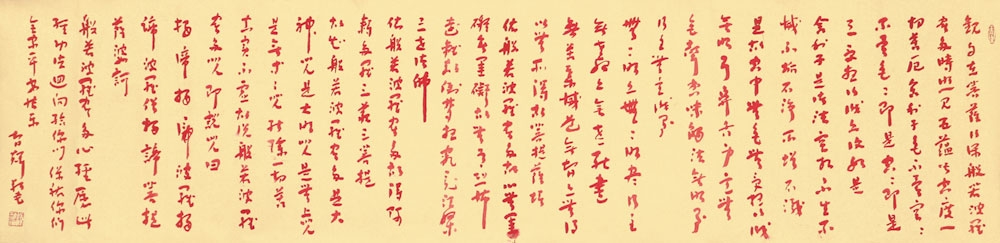 觀自在菩薩行深般若波羅
蜜多時照見五蘊皆空度一
切苦厄舍利子色不異空空
不異色色即是空空即是
色受想行識亦復如是
舍利子是諸法空相不生不
滅不垢不淨不增不減
是故空中無色無受想行識
無眼耳鼻舌身意無
色聲香味觸法無眼界
乃至無意識界
無無明亦無無明盡乃至
無老死亦無老死盡
無苦集滅道無智亦無得
以無所得故菩提薩埵
依般若波羅蜜多故心無罣
礙無罣礙故無有恐怖
遠離顛倒夢想究竟涅槃
三世諸佛
依般若波羅蜜多故得阿
耨多羅三藐三菩提
故知般若波羅蜜多是大
神咒是大明咒是無上咒
是無等等咒能除一切苦
真實不虛故說般若波羅
蜜多咒即說咒曰
揭諦揭諦波羅揭
諦波羅僧揭諦菩提
薩婆訶
般若波羅蜜多心經願此
功德迴向給你們保佑你們
全家平安快樂